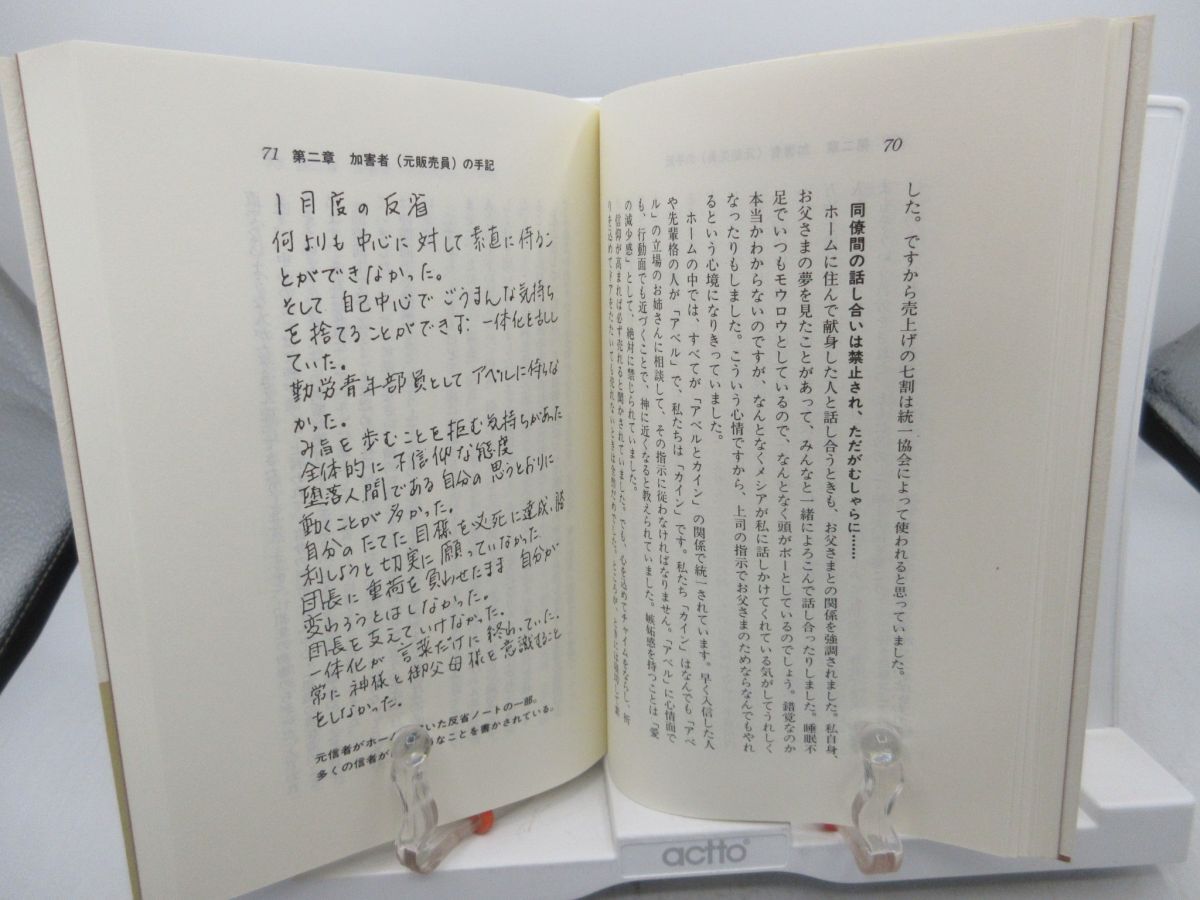 70
した。ですから売上げの七割は統一協会によって使われると思っていました。
同僚間の話し合いは禁止され、ただがむしゃらに……
ホームに住んで献身した人と話し合うときも、お父さまとの関係を強調されました。私自身、
お父さまの夢を見たことがあって、みんなと一緒によろこんで話し合ったりしました。睡眠不
足でいつもモウロウとしているので、なんとなく頭がボーとしているのでしょう。錯覚なのか
本当かわからないのですが、なんとなくメシアが私に話しかけてくれている気がしてうれしく
なったりもしました。こういう心情ですから、上司の指示でお父さまのためならなんでもやれ
るという心境になりきっていました。
ホームの中では、すべてが「アベルとカイン」の関係で統一されています。早く入信した人
や先輩格の人が「アベル」で、私たちは「カイン」です。私たち「カイン」はなんでも「アベ
ル」の立場のお姉さんに相談して、その指示に従わなければなりません。「アベル」に心情面で
も、行動面でも近づくことで、神に近くなると教えられていました。嫉妬感を持つことは「愛
の減少感」として、絶対に禁じられていました。
信仰が高まれば必ず売れると聞かされていました。でも、心を込めてチャイムをならし、祈
71 第二章 加害者（元販売員）の手記
1月度の反省
何よりも中心に対して素直に侍るこ
とができなかった。
そして自己中心でごうまんな気持ち
を捨てることができず 一体化を
ていた。
勤労青年部員としてアベルに侍らな
かった。
み旨を歩むことを拒む気持ちがあった
全体的に不信仰な態度
堕落人間である自分の思うとおりに
動くことが多かった。
自分のたてた目標を必死に達成、勝
利しようと切実に願っていなかった
団長に重荷を負わせたまま 自分が
変わろうとはしなかった。
団長を支えていけなかった。
一体化が言葉だけに終わっていた。
常に神様と御父母様を意識すること
をしなかった。
元信者がホーム いた反省ノートの一部。
多くの信者が なことを書かされている。
actto